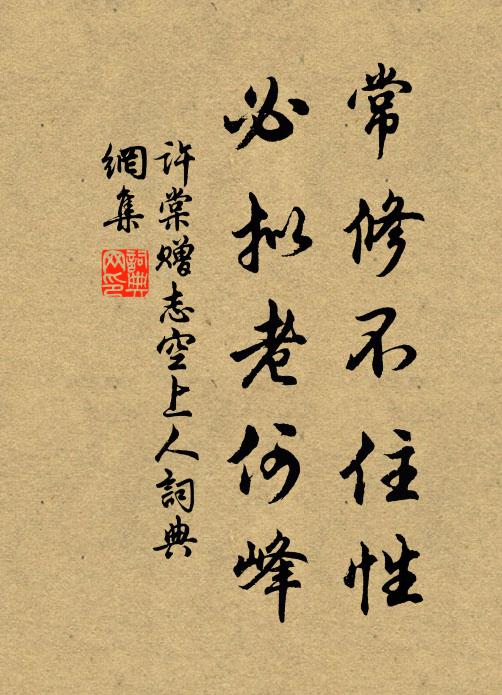 常修不住性
必拟老何峰
许棠赠志空上人詞典
網集
詞典
网印